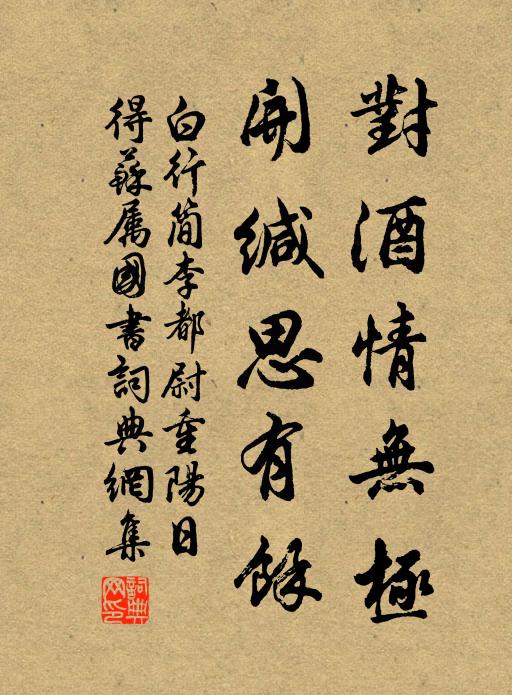 對酒情無極
開緘思有餘
白行簡李都尉重陽日
得蘇属國書詞典網集
詞典網印